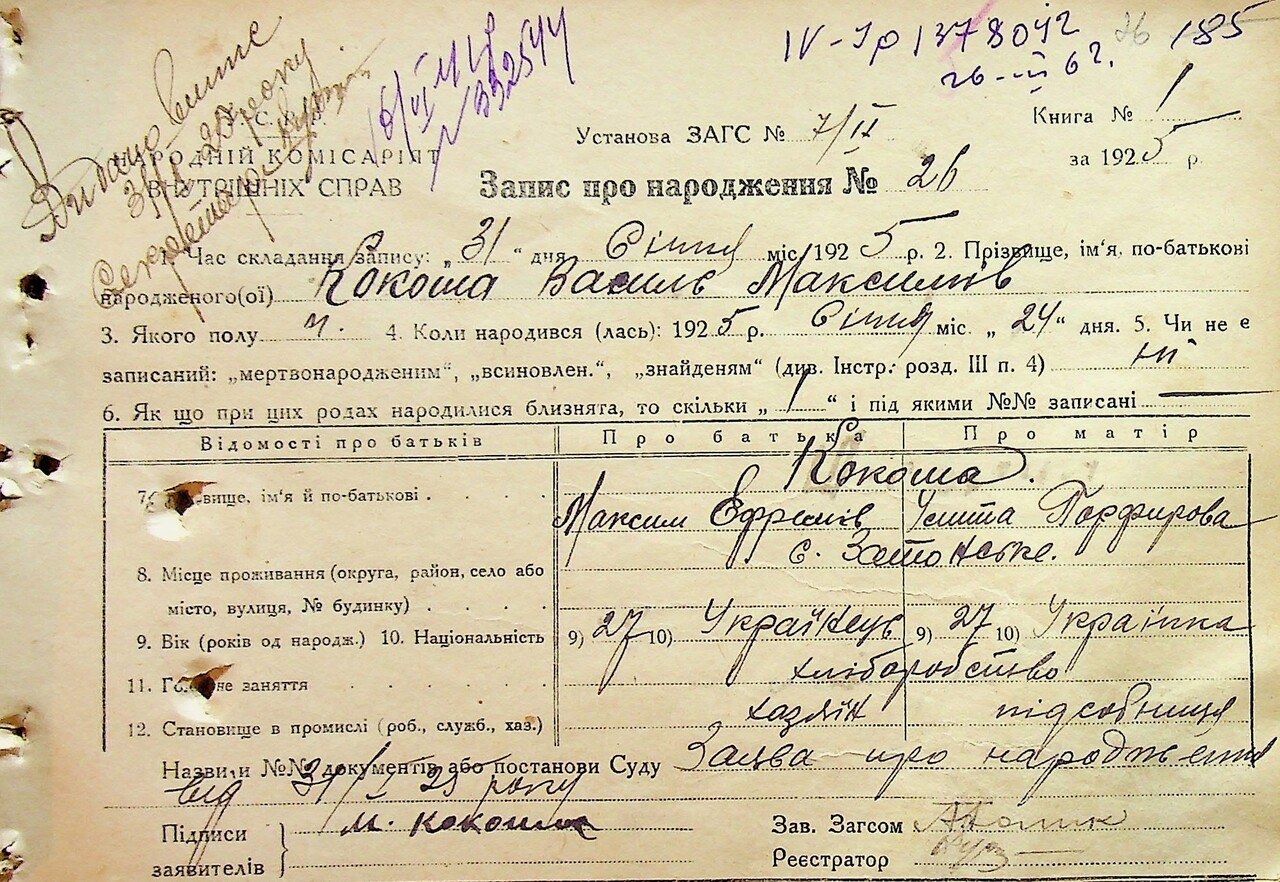 IV-Ір 1378042 26 185
26-III 62.
16/VI 418
№ 332544
Видано витяг
31/I 25 року
Секретар
У.С.Р.Р.
НАРОДНІЙ КОМІСАРІЯТ
ВНУТРІШНІХ СПРАВ
Установа ЗАГС № 7/II
Книга № 1
за 1925 р.
Запис про народження № 26
1. Час складання запису: „31“ дня Січня міс. 1925 р. 2. Прізвище, ім‘я, по-батькові
народженого(ої) Кокоша Василь Максимів
3. Якого полу ч. 4. Коли народився (лась): 1925 р. Січня міс. „24“ дня. 5. Чи не є
записаний: „мертвонародженим“, „всиновлен.“, „знайденям“ (див. Інстр. розд. III п. 4) ні
6. Як що при цих родах народилися близнята, то скільки „1“ і під якими №№ записані —
Відомості про батьків Про батька Про матір
Кокоша.
7. вище, ім‘я й по-батькові . . . . Максим Ефремів Устина Порфирова
с. Затонське.
8. Місце проживання (округа, район, село або
місто, вулиця, № будинку) . . . .
9. Вік (років од народж.) 10. Національність 9) 27 10) Українець 9) 27 10) Українка
11. Головне заняття . . . . . . хліборобство
12. Становище в промислі (роб., служб., хаз.) хазяїн підсобниця
Назви й №№ документів або постанови Суду Заява про народження
від 31/I 25 року
Підписи
заявителів
М. Кокоша
Зав. Загсом
Реєстратор